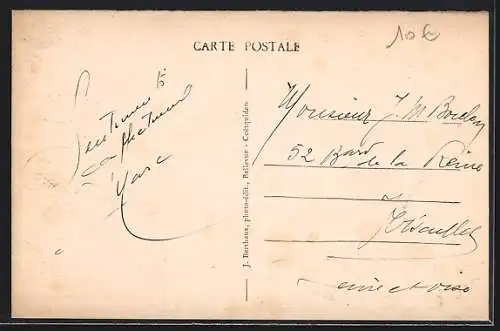 CARTE POSTALE
10 €
Sentiments
affectueux
Marc
J. Berthaux, photo-édit., Bellevue - Coëtquidan
Monsieur J. M.
52 Bard de la Reine
Versailles
Seine et Oise